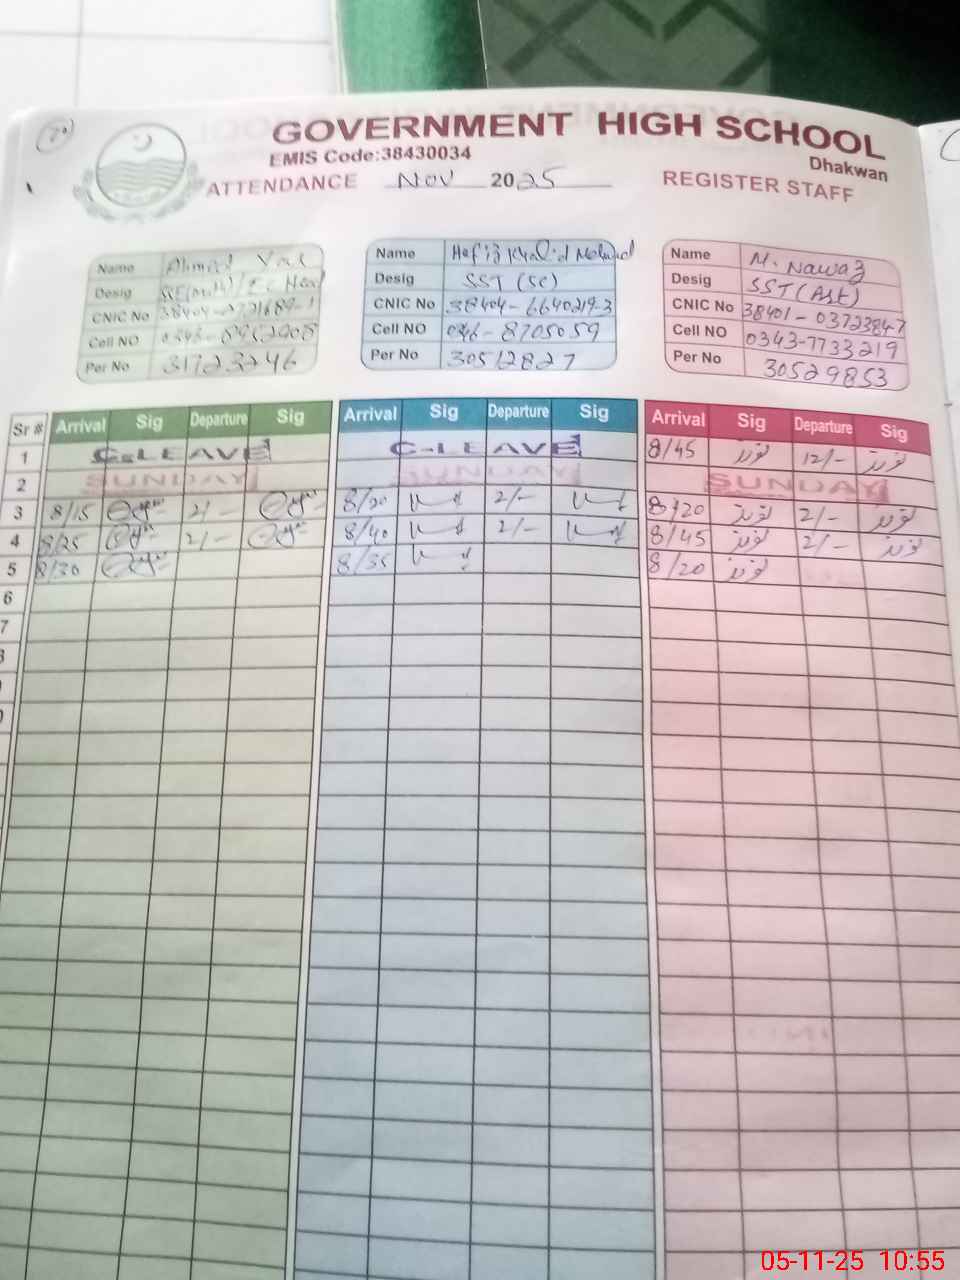 GOVERNMENT HIGH SCHOOL
EMIS Code:38430034
Dhakwan
ATTENDANCE Nov 2025 REGISTER STAFF
Name Ahmad Yar
Desig
CNIC No
Cell NO
Per No 31723246
Name Hafiz Khalid
Desig SST (SC)
CNIC No 38404-6640219-3
Cell NO 0346-8705059
Per No 30512827
Name M. Nawaz
Desig SST (Ast)
CNIC No 38401-0372384-7
Cell NO 0343-7733219
Per No 30529853
Sr # Arrival Sig Departure Sig Arrival Sig Departure Sig Arrival Sig Departure Sig
1 C-LEAVE C-LEAVE 8/45 12/-
2 SUNDAY SUNDAY SUNDAY
3 8/15 2/- 8/20 2/- 8/20 2/-
4 8/25 2/- 8/40 2/- 8/45 2/-
5 8/30 8/35 8/20
6
7
05-11-25 10:55